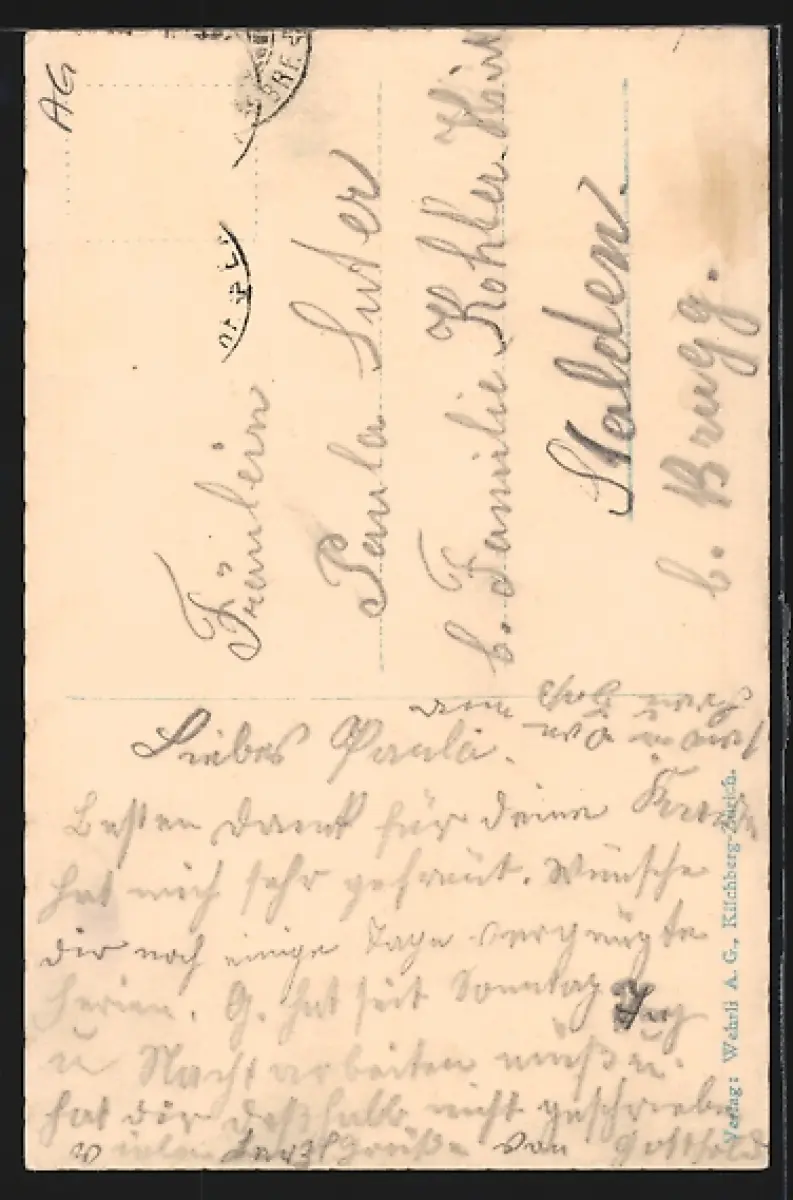 AG
Fräulein
Paula Suter
b. Familie Kohler
Stalden
b. Brugg.
Liebes Paula.
Besten Dank für deine
hat mich sehr gefreut. Wünsche
dir noch einige Tage vergnügte
Ferien. G. hat seit Sonntag Tag
u Nacht arbeiten müssen.
hat dir deshalb nicht geschrieben
viele Herzl grüße von Gotthold
Verlag: Wehrli A. G., Kilchberg-Zürich.